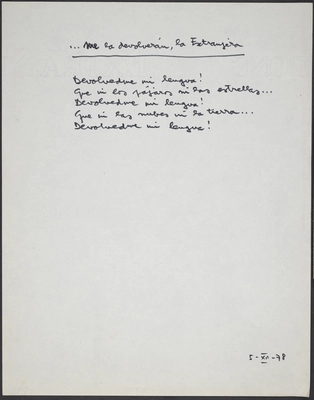 ... Me la devolverán, la Extranjera
Devolvedme mi lengua!
Que ni los pájaros ni las estrellas...
Devolvedme mi lengua!
Que ni las nubes ni la tierra...
Devolvedme mi lengua!
5-XI-78